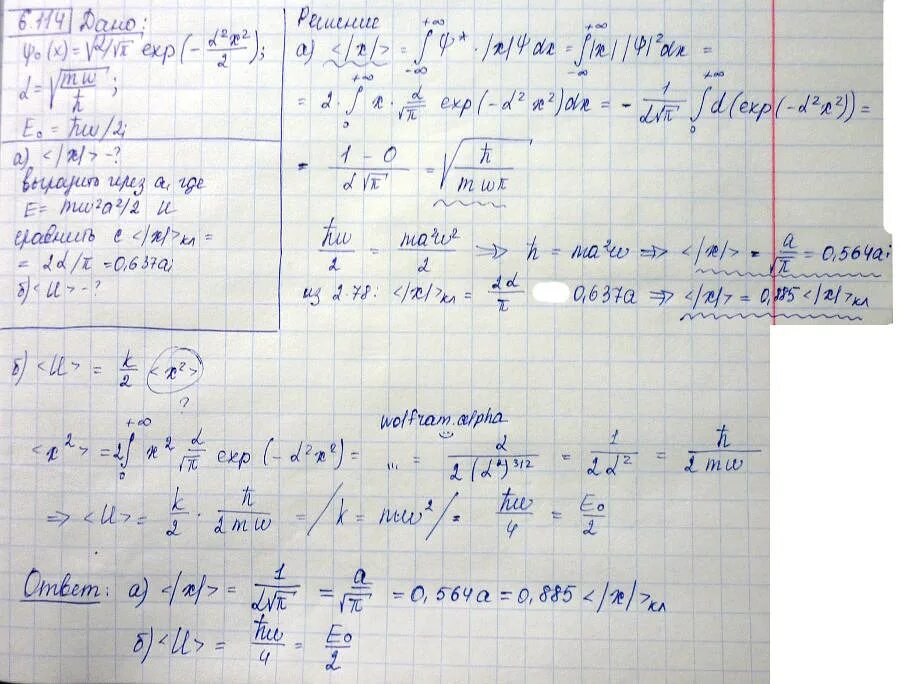 6.114 Дано:
ψ₀(x) = √(α/√π) exp(-α²x²/2);
α = √(mω/ħ);
E₀ = ħω/2;
а) <|x|> - ?
выразить через a, где
E = mω²a²/2 и
сравнить с <|x|>кл =
= 2α/π = 0,637a;
б) <U> - ?
Решение
а) <|x|> = ∫_{-∞}^{+∞} ψ* · |x|ψ dx = ∫_{-∞}^{+∞} |x| |ψ|² dx =
= 2 · ∫_0^{+∞} x · α/√π exp(-α²x²)dx = - 1/(α√π) ∫_0^{+∞} d(exp(-α²x²)) =
= (1 - 0)/(α√π) = √(ħ/(mωπ))
ħω/2 = ma²ω²/2 ⇒ ħ = ma²ω ⇒ <|x|> = a/√π = 0,564a;
из 2.78: <|x|>кл = 2α/π 0,637a ⇒ <|x|> = 0,885 <|x|>кл
б) <U> = k/2 <x²>
?
wolfram.alpha
<x²> = 2∫_0^{+∞} x² α/√π exp(-α²x²) = ... = α/(2(α²)^{3/2}) = 1/(2α²) = ħ/(2mω)
⇒ <U> = k/2 · ħ/(2mω) = /k = mω²/ = ħω/4 = E₀/2
Ответ: а) <|x|> = 1/(α√π) = a/√π = 0,564a = 0,885 <|x|>кл
б) <U> = ħω/4 = E₀/2